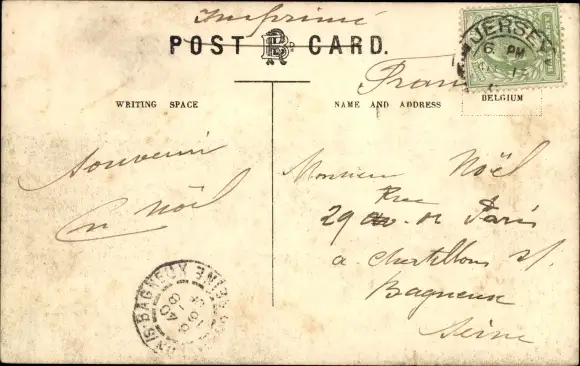 Imprimé
POST CARD.
JERSEY
6 PM
BELGIUM
WRITING SPACE
NAME AND ADDRESS
Souvenir
Noël
Monsieur Noël
Rue
29 de Paris
a Chatillon s/
Bagneux
Seine
BAGNEUX
SEINE